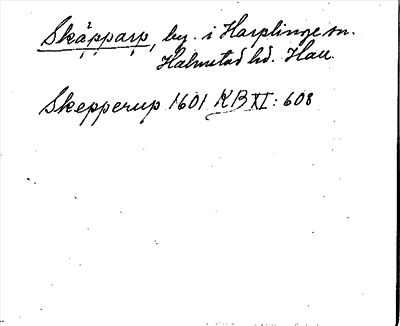 Skäpparp, by. i Harplinge sn.
Halmstad hd. Hall.
Skepperup 1601 KB XI: 608